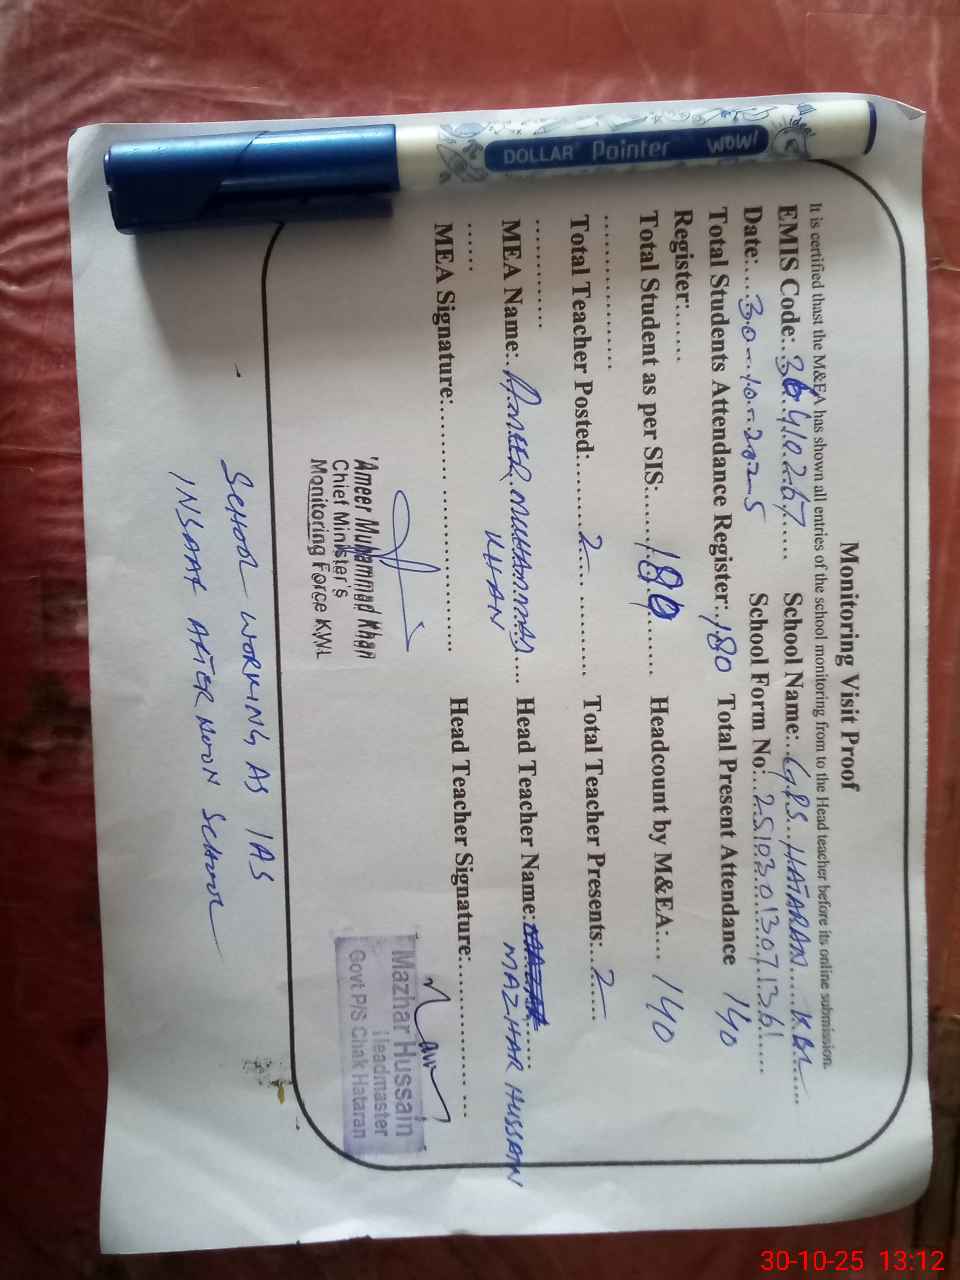 DOLLAR Pointer WOW!
Monitoring Visit Proof
It is certified thast the M&EA has shown all entries of the school monitoring from to the Head teacher before its online submission.
EMIS Code:..36410267..... School Name:..G.P.S...HATARAN.....KBL.......
Date:....30-10-2025 School Form No:..25103013071361.....
Total Students Attendance Register:.180 Total Present Attendance 140
Register:......
Total Student as per SIS:......180....... Headcount by M&EA:... 140
................
Total Teacher Posted:.......2............. Total Teacher Presents:...2.....
............
MEA Name:..AMEER MUHAMMAD... Head Teacher Name:......
KHAN MAZHAR HUSSAIN
.....
MEA Signature:............................ Head Teacher Signature:......................
'Ameer Muhammad Khan
Chief Minister's
Monitoring Force KWL
Mazhar Hussain
Headmaster
Govt P/S Chak Hataran
SCHOOL WORKING AS IAS
INSAAF AFTER NOON SCHOOL
30-10-25 13:12